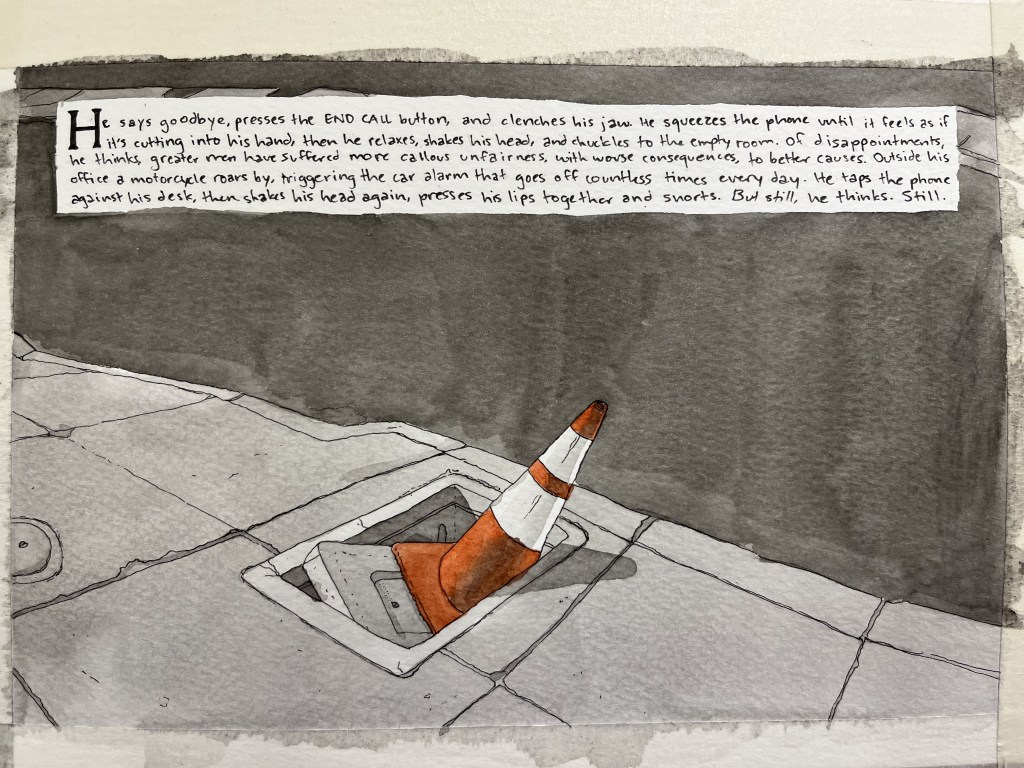 He says goodbye, presses the END CALL button, and clenches his jaw. He squeezes the phone until it feels as if
it's cutting into his hand, then he relaxes, shakes his head, and chuckles to the empty room. Of disappointments,
he thinks, greater men have suffered more callous unfairness, with worse consequences, to better causes. Outside his
office a motorcycle roars by, triggering the car alarm that goes off countless times every day. He taps the phone
against his desk, then shakes his head again, presses his lips together and snorts. But still, he thinks. Still.